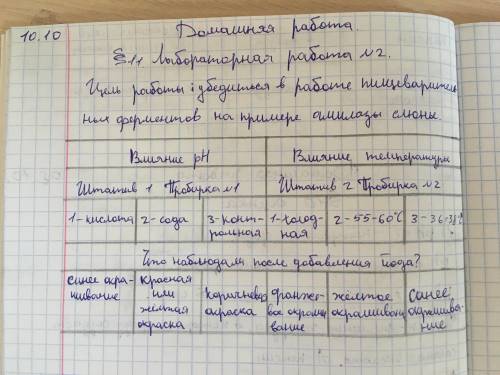 10.10 Домашняя работа.
§11 Лабораторная работа №2.
Цель работы: убедиться в работе пищеваритель
ных ферментов на примере амилазы слюны.
Влияние pH Влияние температуры
Штатив 1 Пробирка №1 Штатив 2 Пробирка №2
1-кислота 2-сода 3-конт-рольная 1-холод-ная 2-55-60°C 3-36-38°C
Что наблюдали после добавления йода?
синее окра- Красная коричневая оранже- жёлтое синее
шивание или окраска вое окраши окрашивание окрашива-
жёлтая вание ние
окраска